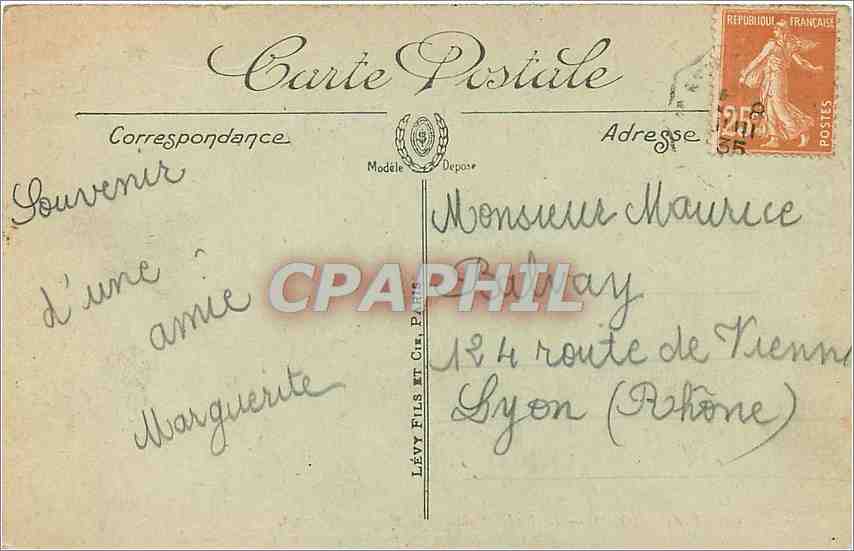 Carte Postale
RÉPUBLIQUE FRANÇAISE
25
POSTES
8
35
Correspondance
Adresse
Modèle Déposé
Souvenir
d'une
amie
Marguerite
LÉVY FILS ET CIE, PARIS
Monsieur Maurice
124 route de Vienne
Lyon (Rhône)
CPAPHIL